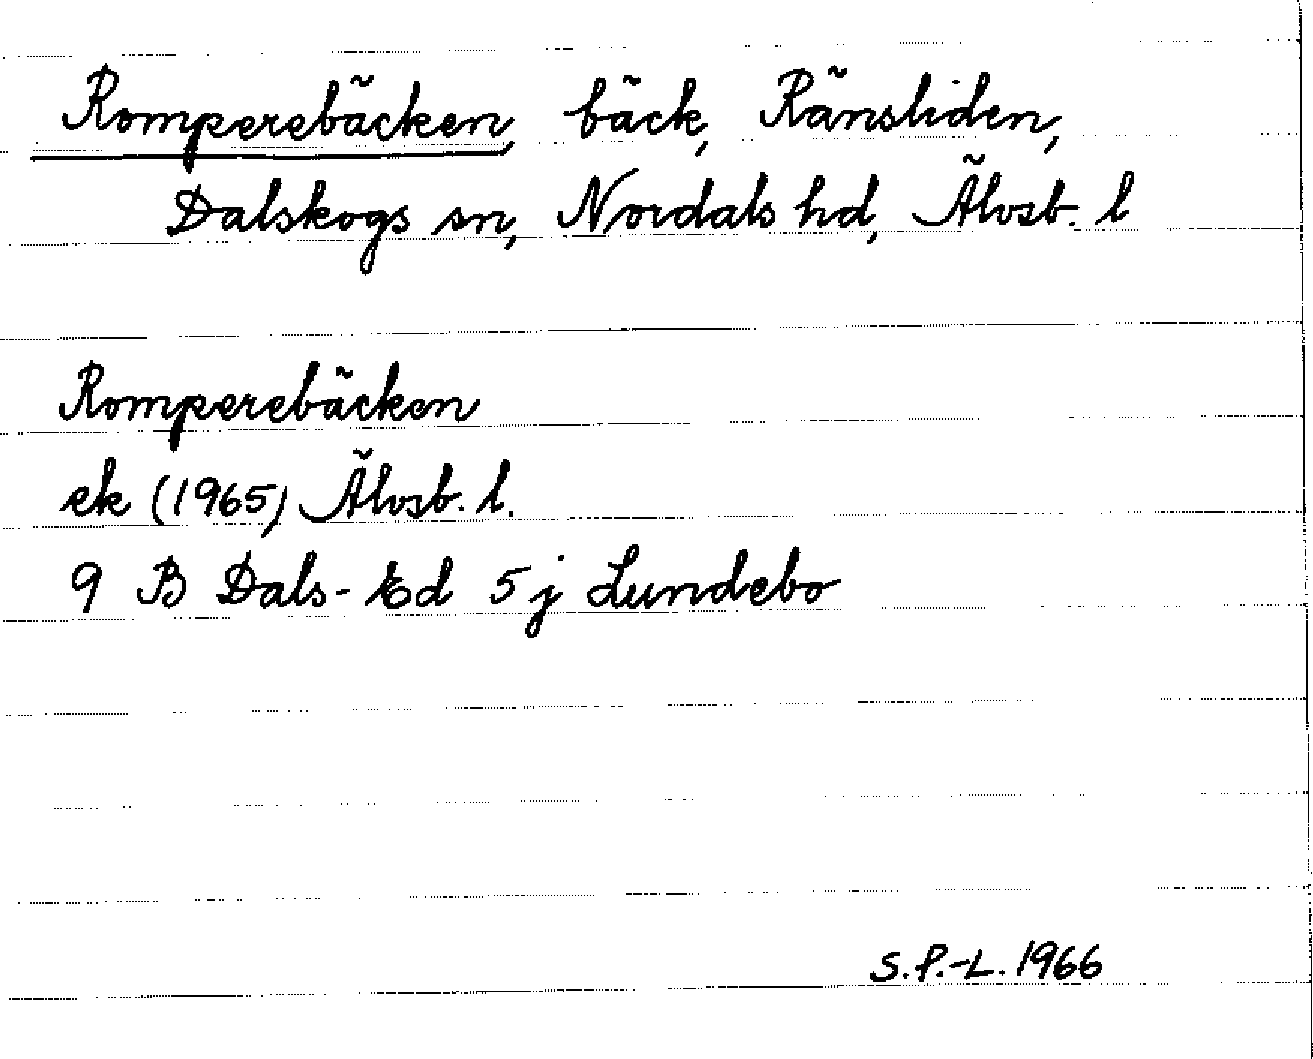 Romperebäcken, bäck, Ränsliden,
Dalskogs sn, Nordals hd, Älvsb. l
Romperebäcken
ek (1965) Älvsb. l.
9 B Dals-Ed 5 j Lundebo
S.P.-L. 1966